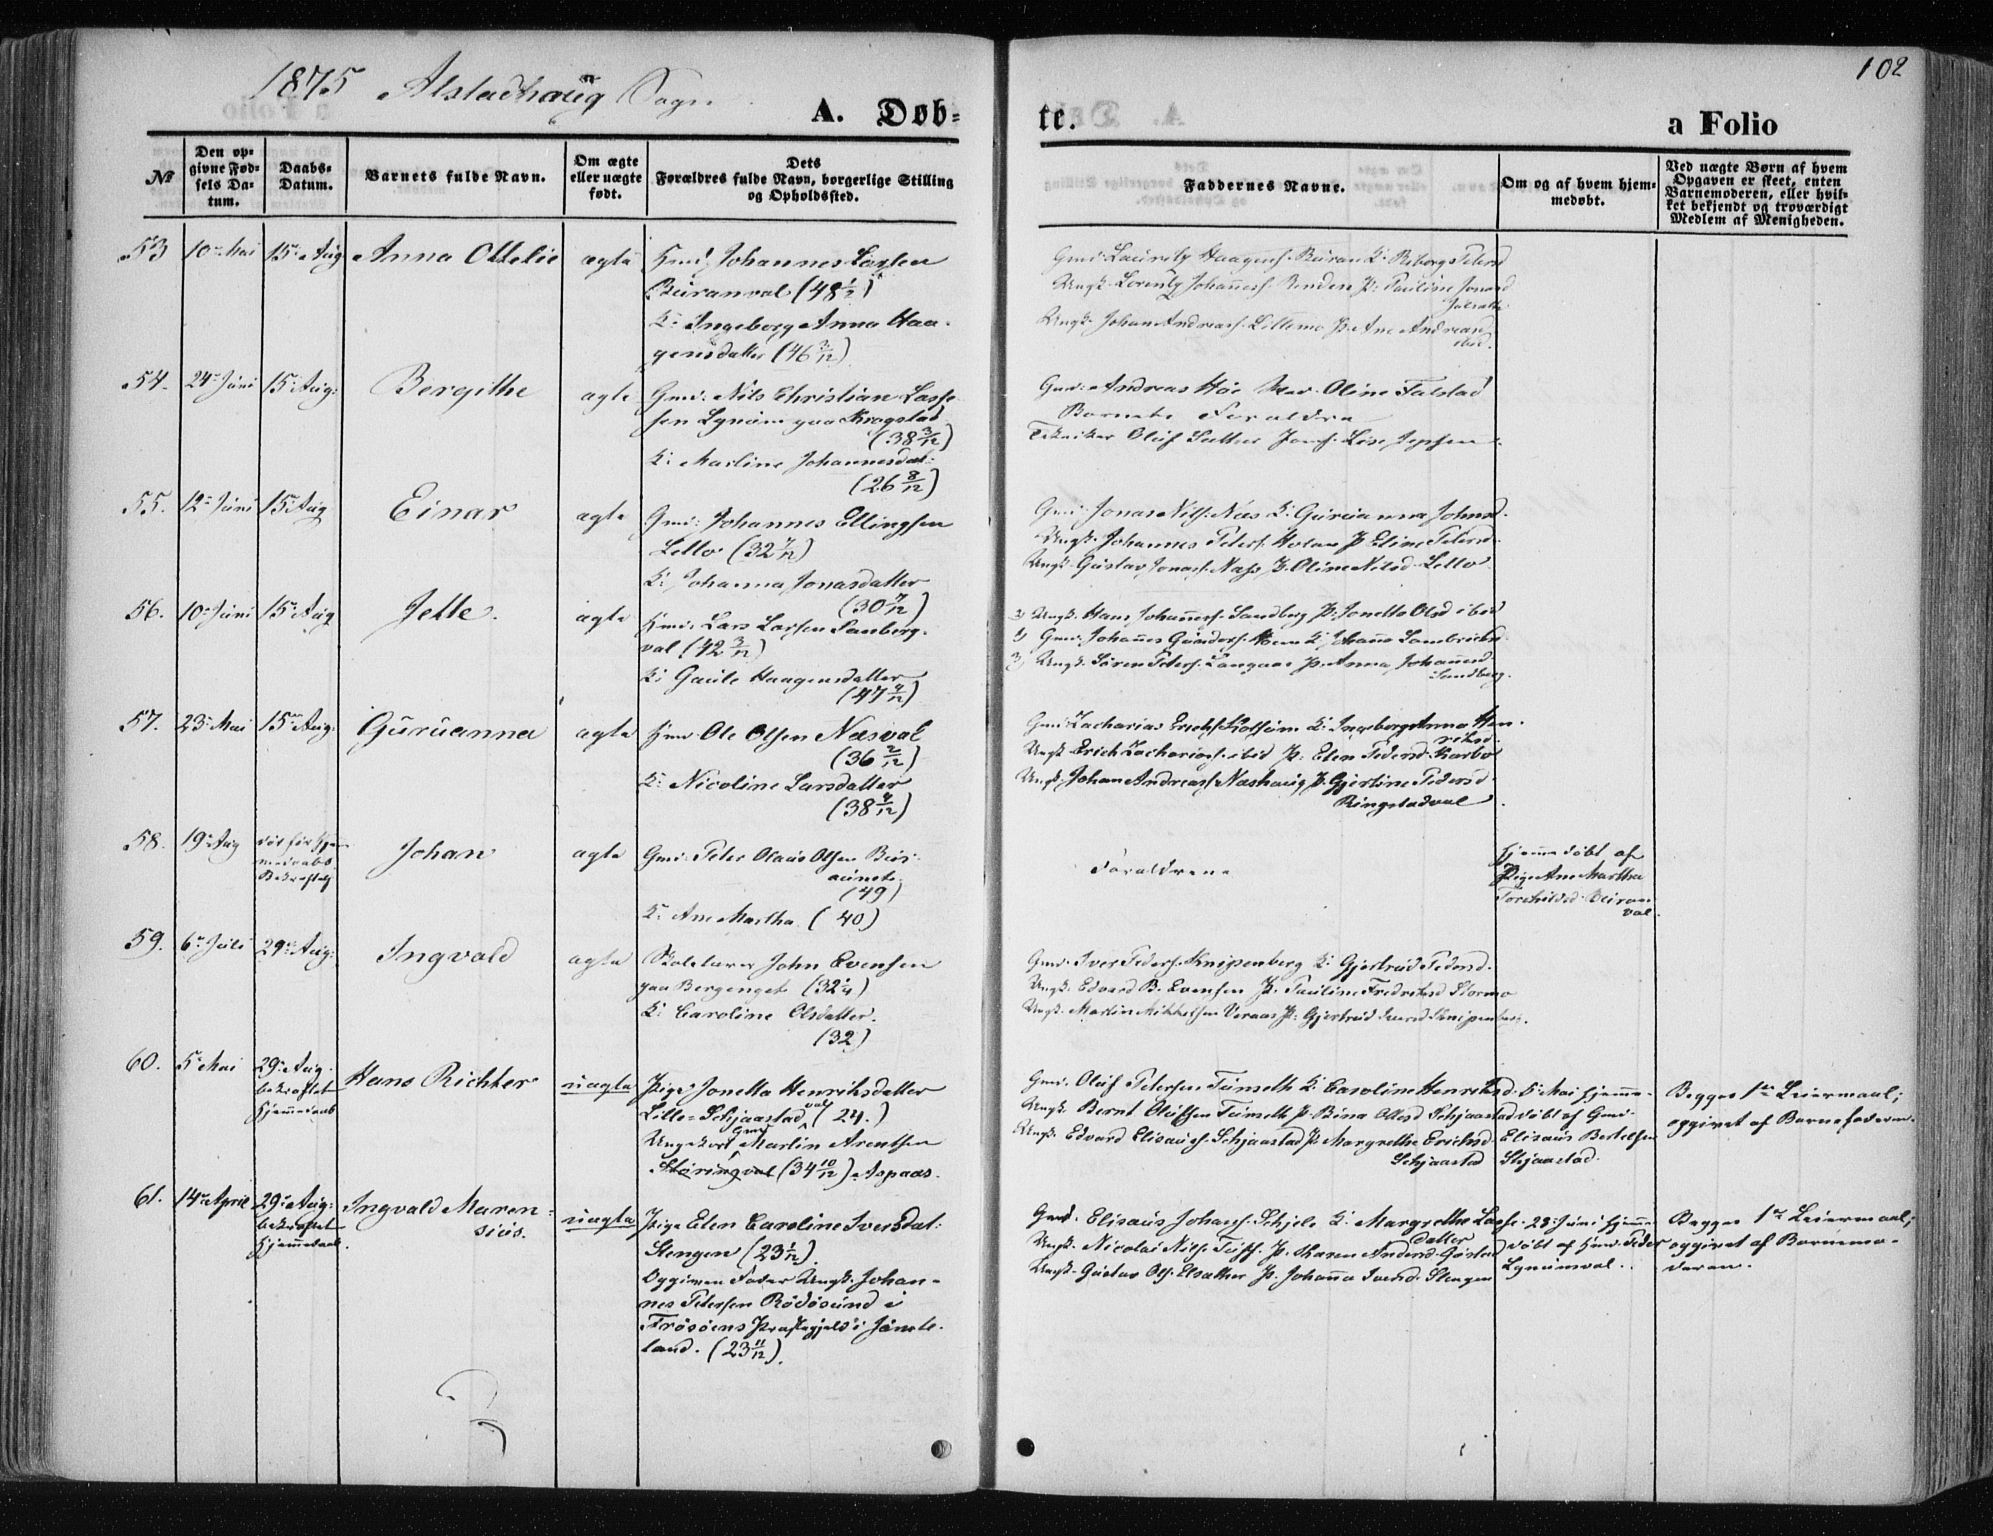 1875 Alstadhaug Sogn
102
A. Døb-
te.
a Folio
No
Den op-
givne Fød-
sels Da-
tum.
Daabs-
Datum.
Barnets fulde Navn.
Om ægte
eller uægte
født.
Dets
Forældres fulde Navn, borgerlige Stilling
og Opholdssted.
Faddernes Navne.
Om og af hvem hjem-
medøbt.
Ved uægte Børn af hvem
Opgaven er skeet, enten
Barnemoderen, eller hvil-
ket bekjendt og troværdigt
Medlem af Menigheden.
53 10de Mai 15de Aug Anna Ottelie ægte
Hmd. Johannes Larsen
Buranval (48 1/2)
K: Ingeborg Anna Haa-
gensdatter (46 3/12)
Gmd: Lauritz Haagens. Buran K: Reborg Petersd
Ungk. Lorentz Johannes. P: Pauline Jonasd
Ungk. Johan Andreas. Lillemo P: Ane Andreasd
ibid.
54. 24de Juni 15de Aug: Bergithe ægte
Gmd: Nils Christian Lass-
sen Lynum paa Krogstad
(38 3/12)
K: Marline Johannesdat:
(26 8/12)
Gmd: Andreas Høe Mad. Oline Falstad
Barnets Forældre
Tekniker Oluf Sæther Jomf. Lise Jepsen
55. 12te Juni 15de Aug Einar ægte
Gmd: Johannes Ellingsen
Lello (32 7/12)
K: Johanna Jonasdatter
(30 7/12)
Gmd: Jonas Nils. Næs K: Guruanna Johnsd.
Ungk. Johannes Peters. Holan P: Eline Petersd.
Ungk. Gustav Jonas. Næss P. Oline Nilsd. Lello
56. 10de Juni 15de Aug Jette. ægte
Hmd: Lars Larsen Sanberg-
val (42 3/12)
K: Gaule Haagensdatter
(47 9/12)
1) Ungk. Hans Johannes. Sandberg P: Jonetta Olsd ibid
2) Gmd: Johannes Gunders. Moen K: Johanna
3) Ungk. Søren Peters. Langaas P: Anna Johannesd.
Sandberg.
57. 23de Mai 15de Aug. Guruanna ægte
Hmd. Ole Olsen Næsval
(36 2/12)
K: Nicoline Larsdatter
(38 9/12)
Gmd: Zacharias Erichs. K: Ingeborganna Hen-
riksd.
Ungk. Erich Zacharias. ibid P: Elen Pedersd. Karbø
Ungk. Johan Andreas. Næshaug P. Gjertine Pedersd
Ringstadval.
58. 19de Aug død før Hjem-
medaabs
Bekræftelse
Johan ægte
Gmd: Peter Olaus Olsen Bur-
aunet.
(49)
K: Ane Martha (40)
Forældrene
Hjemmedøbt af
Pige Ane Martha
Torchildsd. Buran-
val.
59. 6te Juli 29de Aug: Ingvald ægte
Skolelærer John Evensen
paa Berganget (32 1/4)
K: Caroline Olsdatter.
(32)
Gmd. Iver Peders. Knipenberg K: Gjertrud Pedersd.
Ungk. Edvard B. Evensen P. Pauline Fredriksd Stormo
Ungk. Martin Mikkelsen Veraas P: Gjertrud Iversd Knipenberg.
60. 5te Mai 29de Aug.
bekræftet
Hjemmedaab
Hans Richter uægte
Pige Jonetta Henriksdatter
Lille-Schjaastadval (24.)
Ungekarl Gmd Martin Arentsen
(34 10/12) Aspaas.
Gmd. Oluf Petersen Tunseth K: Caroline Henriksd.
Ungk. Bernt Olufsen Tunseth P. Bina Ottesd Schjaastad
Ungk. Edvard Elisæus. Schjaastad P. Margrethe Erichsd.
Schjaastad
5te Mai hjemme-
døbt af Gmd.
Elisæus Bertelsen
Skjaastad.
Begges 1ste Leiermaal;
opgivet af Barnefaderen.
61. 14de April 29de Aug:
bekræftet
Hjemmedaab.
Ingvald Maren-
sius.
uægte
Pige Elen Caroline Iversdat:
Stengen (23 1/12).
Opgiven Fader Ungk. Johan-
nes Petersen Rødøsund i
Frösöens Præstegjeld i Jämte-
land. (23 11/12).
Gmd. Elisæus Johans. Schjele K: Margrethe Lasse-
datter
Ungk. Nicolai Nils. P. Karen Andersd.
Ungk. Gustav Ols. Elsæther P. Johanna Iversd. Stengen
28de Juni hjemme-
døbt af Hmd. Peder
Lynumval.
Begges 1ste Leiermaal;
opgivet af Barnemo-
deren.